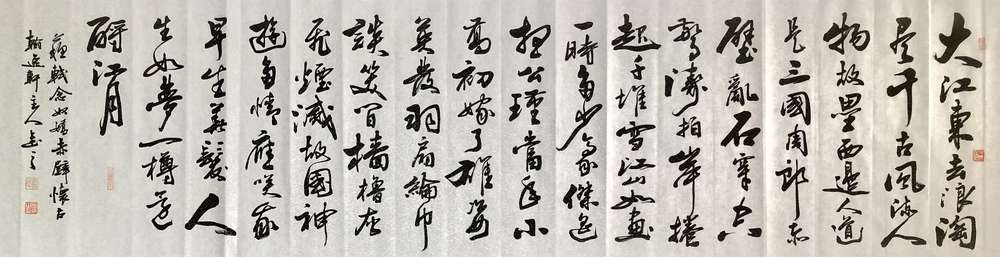 大江東去浪淘
尽千古風流人
物故壘西邊人道
是三國周郎赤
壁亂石穿空
驚濤拍岸捲
起千堆雪江山如畫
一時多少豪傑遙
想公瑾當年小
喬初嫁了雄姿
英發羽扇綸巾
談笑間檣櫓灰
飛煙滅故國神
遊多情應笑我
早生華髮人
生如夢一樽還
酹江月
蘇軾念奴嬌赤壁懷古
翰逸軒主人